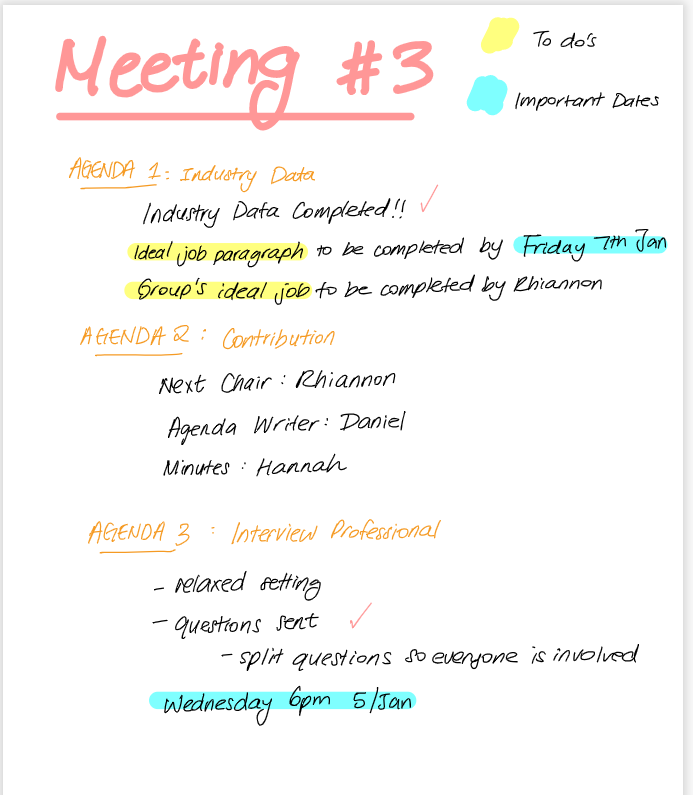 Meeting #3
To do's
Important Dates
AGENDA 1: Industry Data
Industry Data Completed!!
Ideal job paragraph to be completed by Friday 7th Jan
Group's ideal job to be completed by Rhiannon
AGENDA 2: Contribution
Next Chair: Rhiannon
Agenda Writer: Daniel
Minutes: Hannah
AGENDA 3: Interview Professional
- relaxed setting
- questions sent
- split questions so everyone is involved
Wednesday 6pm 5/Jan